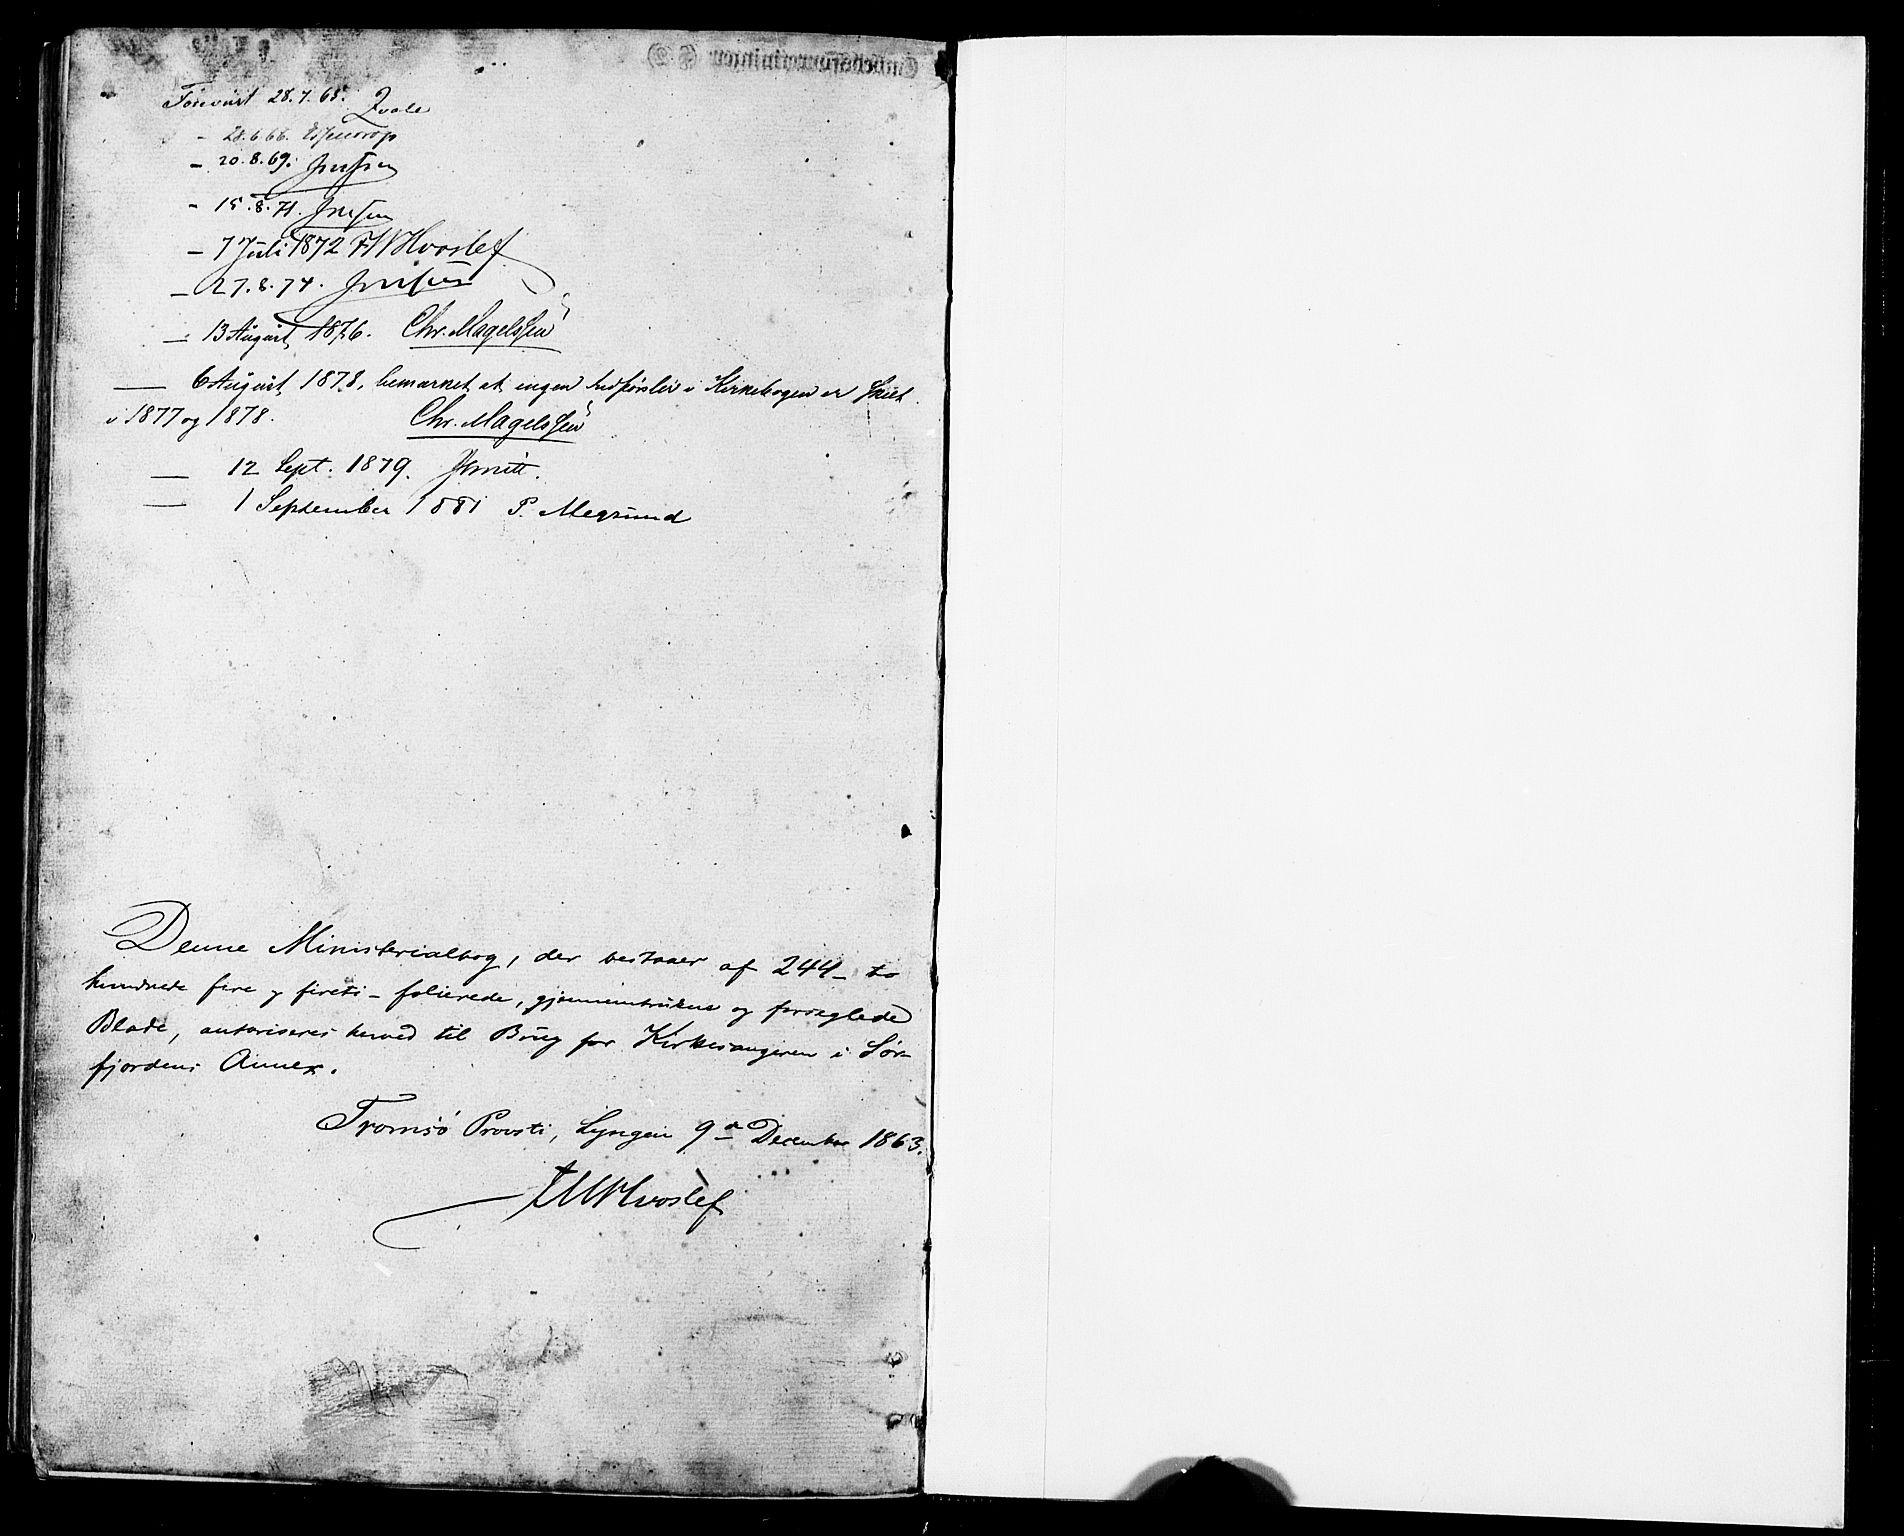 Forevist 28.7.65. Qvale
- 28.6.66.
- 20.8.69. Jensen
- 15.8.71. Jensen
- 7 Juli 1872 FWHvoslef
- 27.8.74. Jensen
- 13 August 1876. Chr. Magelssen
— 6 August 1878, bemærket at ingen Indførsler i Kirkebogen er skeet
i 1877 og 1878. Chr. Magelssen
— 12 Sept. 1879.
— 1 September 1881 P.
Denne Ministerialbog, der bestaaer af 244 - to
hundrede fire og fireti - folierede, gjennemtrukne og forseglede
Blade, autoriseres herved til Brug for Kirkesangeren i Sør-
fjordens Annex.
Tromsö Provsti, Lyngen 9de December 1863.
FWHvoslef